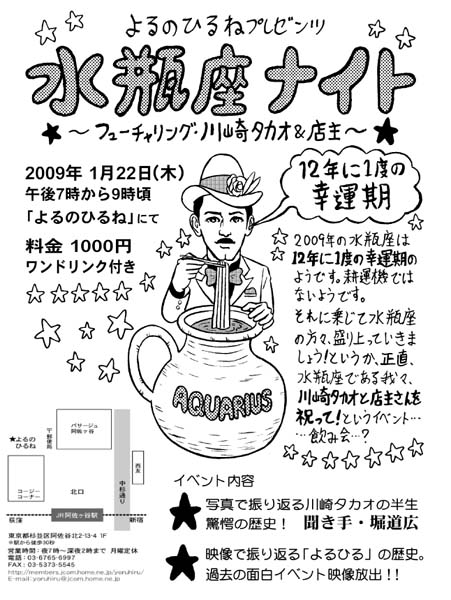 よるのひるねプレゼンツ
水瓶座ナイト
～フューチャリング・川崎タカオ&店主～
2009年 1月22日(木)
午後7時から9時頃
「よるのひるね」にて
料金 1000円
ワンドリンク付き
12年に1度の
幸運期
2009年の水瓶座は
12年に1度の幸運期の
ようです。耕運機では
ないようです。
それに乗じて水瓶座
の方々、盛り上っていきま
しょう!というか、正直、
水瓶座である我々、
川崎タカオと店主さんを
祝って!というイベント……
……飲み会…?
AQUARIUS
イベント内容
★写真で振り返る川崎タカオの半生
驚愕の歴史! 聞き手・堀道広
★映像で振り返る「よるひる」の歴史。
過去の面白イベント映像放出!!
パサージュ
阿佐ヶ谷
★よるの
ひるね
〒郵便局
西友
中杉通り
コージー
コーナー
北口
荻窪
JR阿佐ヶ谷駅
新宿
東京都杉並区阿佐谷北2-13-4 1F
※駅から徒歩30秒
営業時間:夜7時～深夜2時まで 月曜定休
電話:03-6765-6997
FAX:03-5373-5545
http://members.jcom.home.ne.jp/yoruhiru/
E-mail:yoruhiru@jcom.home.ne.jp